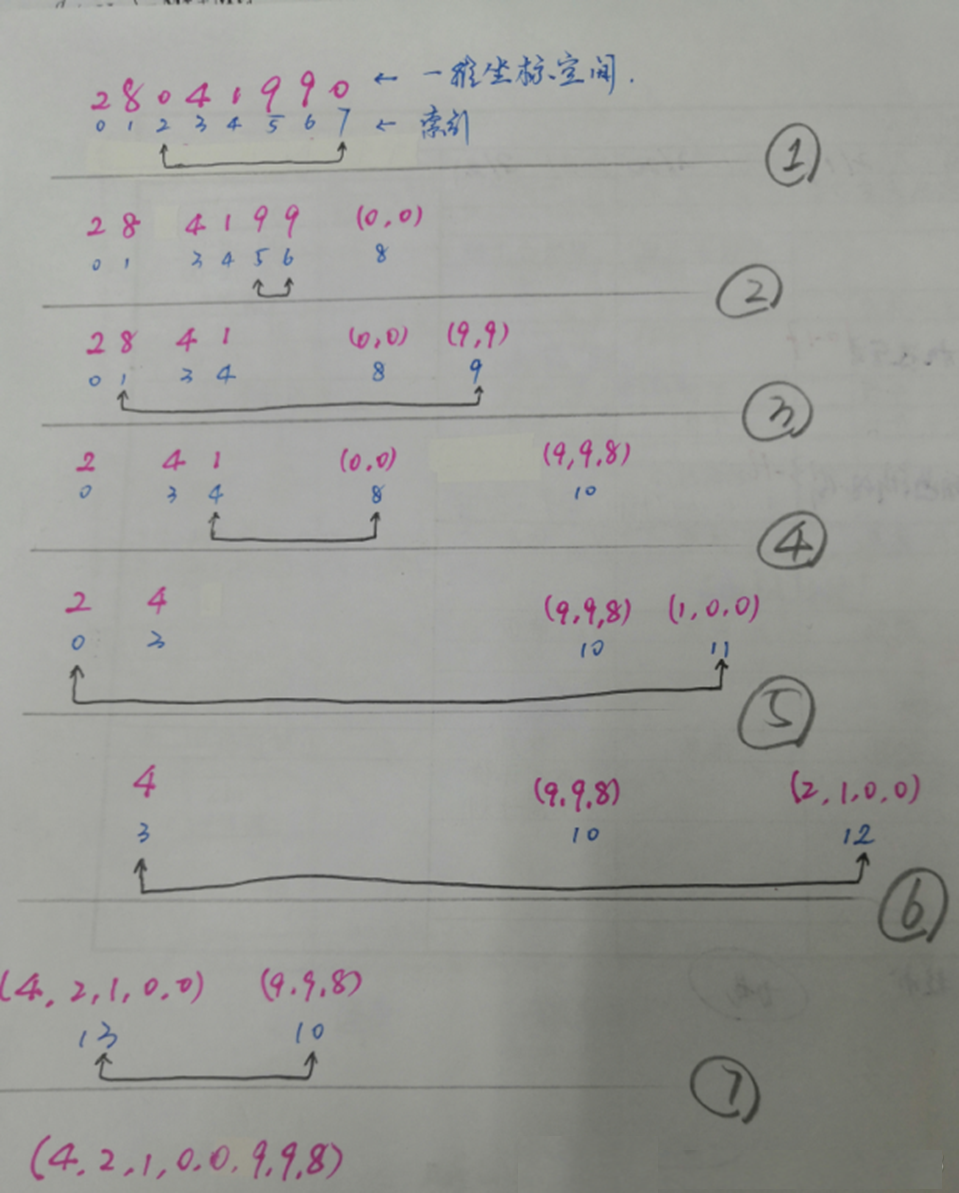 2 8 0 4 1 9 9 0 ← 一维坐标空间.
0 1 2 3 4 5 6 7 ← 索引
①
2 8 4 1 9 9 (0,0)
0 1 3 4 5 6 8
②
2 8 4 1 (0,0) (9,9)
0 1 3 4 8 9
③
2 4 1 (0,0) (9,9,8)
0 3 4 8 10
④
2 4 (9,9,8) (1,0,0)
0 3 10 11
⑤
4 (9,9,8) (2,1,0,0)
3 10 12
⑥
(4,2,1,0,0) (9,9,8)
13 10
⑦
(4,2,1,0,0,9,9,8)